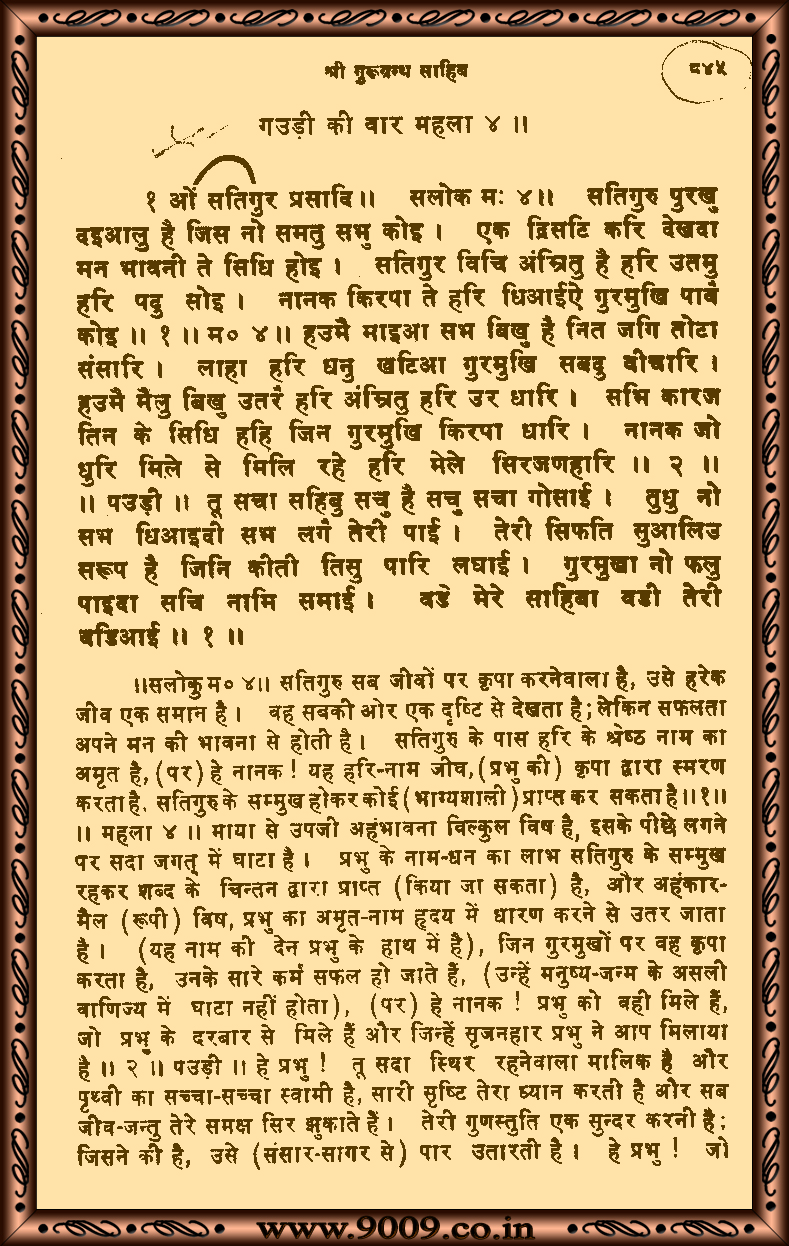 श्री गुरूग्रन्थ साहिब
८४५
गउड़ी की वार महला ४ ॥
१ ओं सतिगुर प्रसादि॥ सलोक मः ४॥ सतिगुरु पुरखु
दइआलु है जिस नो समतु सभु कोइ । एक द्रिसटि करि देखदा
मन भावनी ते सिधि होइ । सतिगुर विचि अंम्रितु है हरि उतमु
हरि पदु सोइ । नानक किरपा ते हरि धिआईऐ गुरमुखि पावै
कोइ ॥ १ ॥ म० ४॥ हउमै माइआ सभ बिखु है नित जगि तोटा
संसारि । लाहा हरि धनु खटिआ गुरमुखि सबदु वीचारि ।
हउमै मैलु बिखु उतरै हरि अंम्रितु हरि उर धारि । सभि कारज
तिन के सिधि हहि जिन गुरमुखि किरपा धारि । नानक जो
धुरि मिले से मिलि रहे हरि मेले सिरजणहारि ॥ २ ॥
॥ पउड़ी ॥ तू सचा साहिबु सचु है सचु सचा गोसाई । तुधु नो
सभ धिआइदी सभ लगै तेरी पाई । तेरी सिफति सुआलिउ
सरूप है जिनि कीती तिसु पारि लघाई । गुरमुखा नो फलु
पाइदा सचि नामि समाई । वडे मेरे साहिबा वडी तेरी
वडिआई ॥ १ ॥
॥सलोकु म० ४॥ सतिगुरु सब जीवों पर कृपा करनेवाला है, उसे हरेक
जीव एक समान है । वह सबकी ओर एक दृष्टि से देखता है; लेकिन सफलता
अपने मन की भावना से होती है । सतिगुरु के पास हरि के श्रेष्ठ नाम का
अमृत है, (पर) हे नानक ! यह हरि-नाम जीव, (प्रभु की) कृपा द्वारा स्मरण
करता है. सतिगुरु के सम्मुख होकर कोई (भाग्यशाली) प्राप्त कर सकता है॥१॥
॥ महला ४ ॥ माया से उपजी अहंभावना बिल्कुल विष है, इसके पीछे लगने
पर सदा जगत् में घाटा है । प्रभु के नाम-धन का लाभ सतिगुरु के सम्मुख
रहकर शब्द के चिन्तन द्वारा प्राप्त (किया जा सकता) है, और अहंकार-
मैल (रूपी) विष, प्रभु का अमृत-नाम हृदय में धारण करने से उतर जाता
है । (यह नाम की देन प्रभु के हाथ में है), जिन गुरमुखों पर वह कृपा
करता है, उनके सारे कर्म सफल हो जाते हैं, (उन्हें मनुष्य-जन्म के असली
वाणिज्य में घाटा नहीं होता), (पर) हे नानक ! प्रभु को वही मिले हैं,
जो प्रभु के दरबार से मिले हैं और जिन्हें सृजनहार प्रभु ने आप मिलाया
है ॥ २ ॥ पउड़ी ॥ हे प्रभु ! तू सदा स्थिर रहनेवाला मालिक है और
पृथ्वी का सच्चा-सच्चा स्वामी है, सारी सृष्टि तेरा ध्यान करती है और सब
जीव-जन्तु तेरे समक्ष सिर झुकाते हैं । तेरी गुणस्तुति एक सुन्दर करनी है;
जिसने की है, उसे (संसार-सागर से) पार उतारती है । हे प्रभु ! जो
www.9009.co.in